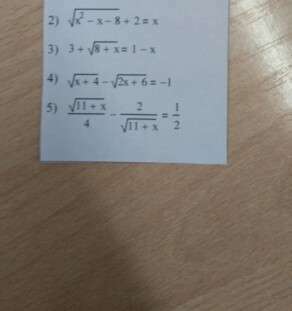 2) √(x² − x − 8) + 2 = x
3) 3 + √(8 + x) = 1 − x
4) √(x + 4) − √(2x + 6) = −1
5) √(11 + x)/4 − 2/√(11 + x) = 1/2